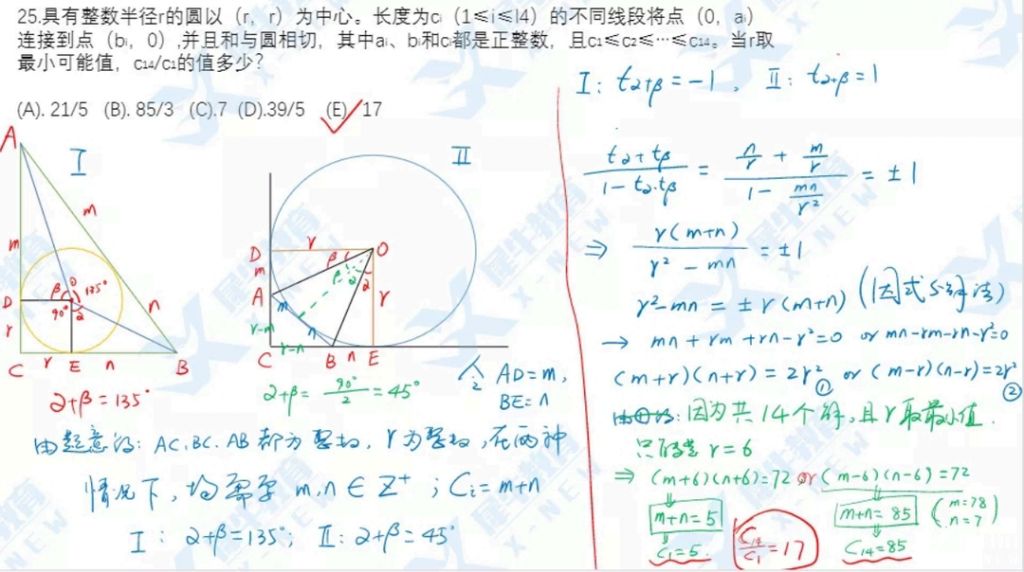 25.具有整数半径r的圆以（r，r）为中心。长度为cᵢ（1≤i≤14）的不同线段将点（0，aᵢ）
连接到点（bᵢ，0）,并且和与圆相切，其中aᵢ、bᵢ和cᵢ都是正整数，且c₁≤c₂≤…≤c₁₄。当r取
最小可能值，c₁₄/c₁的值多少？
(A). 21/5 (B). 85/3 (C).7 (D).39/5 (E) 17
A
I
m
m
D
β
O
135°
90°
2
n
r
C
r
E
n
B
2+β=135°
II
D
r
O
m
β
β
2
2
A
m
r
r-m
n
C
r-n
B
n
E
2+β = 90°/2 = 45°
令 AD=m,
BE=n
由题意得: AC.BC.AB都为整数, r为整数, 在两种
情况下, 均需要 m,n∈Z⁺ ; Cᵢ=m+n
I : 2+β=135°; II: 2+β=45°
I: t2+β=-1, II: t2+β=1
(t2+tβ)/(1-t2·tβ) = (n/r + m/r)/(1 - mn/r²) = ±1
⇒ r(m+n)/(r²-mn) = ±1
r²-mn = ±r(m+n) (因式分解法)
→ mn+rm+rn-r²=0 or mn-rm-rn-r²=0
(m+r)(n+r)=2r² ① or (m-r)(n-r)=2r² ②
因为共14个解, 且r取最小值.
r=6
⇒ (m+6)(n+6)=72 or (m-6)(n-6)=72
m+n=5
m+n=85
(m=78
n=7)
C₁=5
C₁₄/C₁=17
C₁₄=85